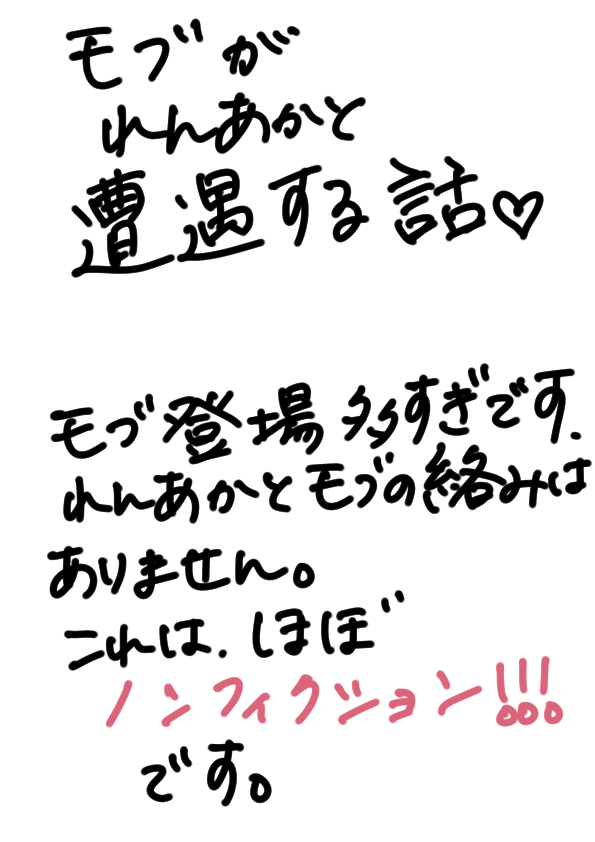 モブが
れんあかと
遭遇する話♡
モブ登場多すぎです.
れんあかとモブの絡みは
ありません。
これは.ほぼ
ノンフィクション!!!
です。